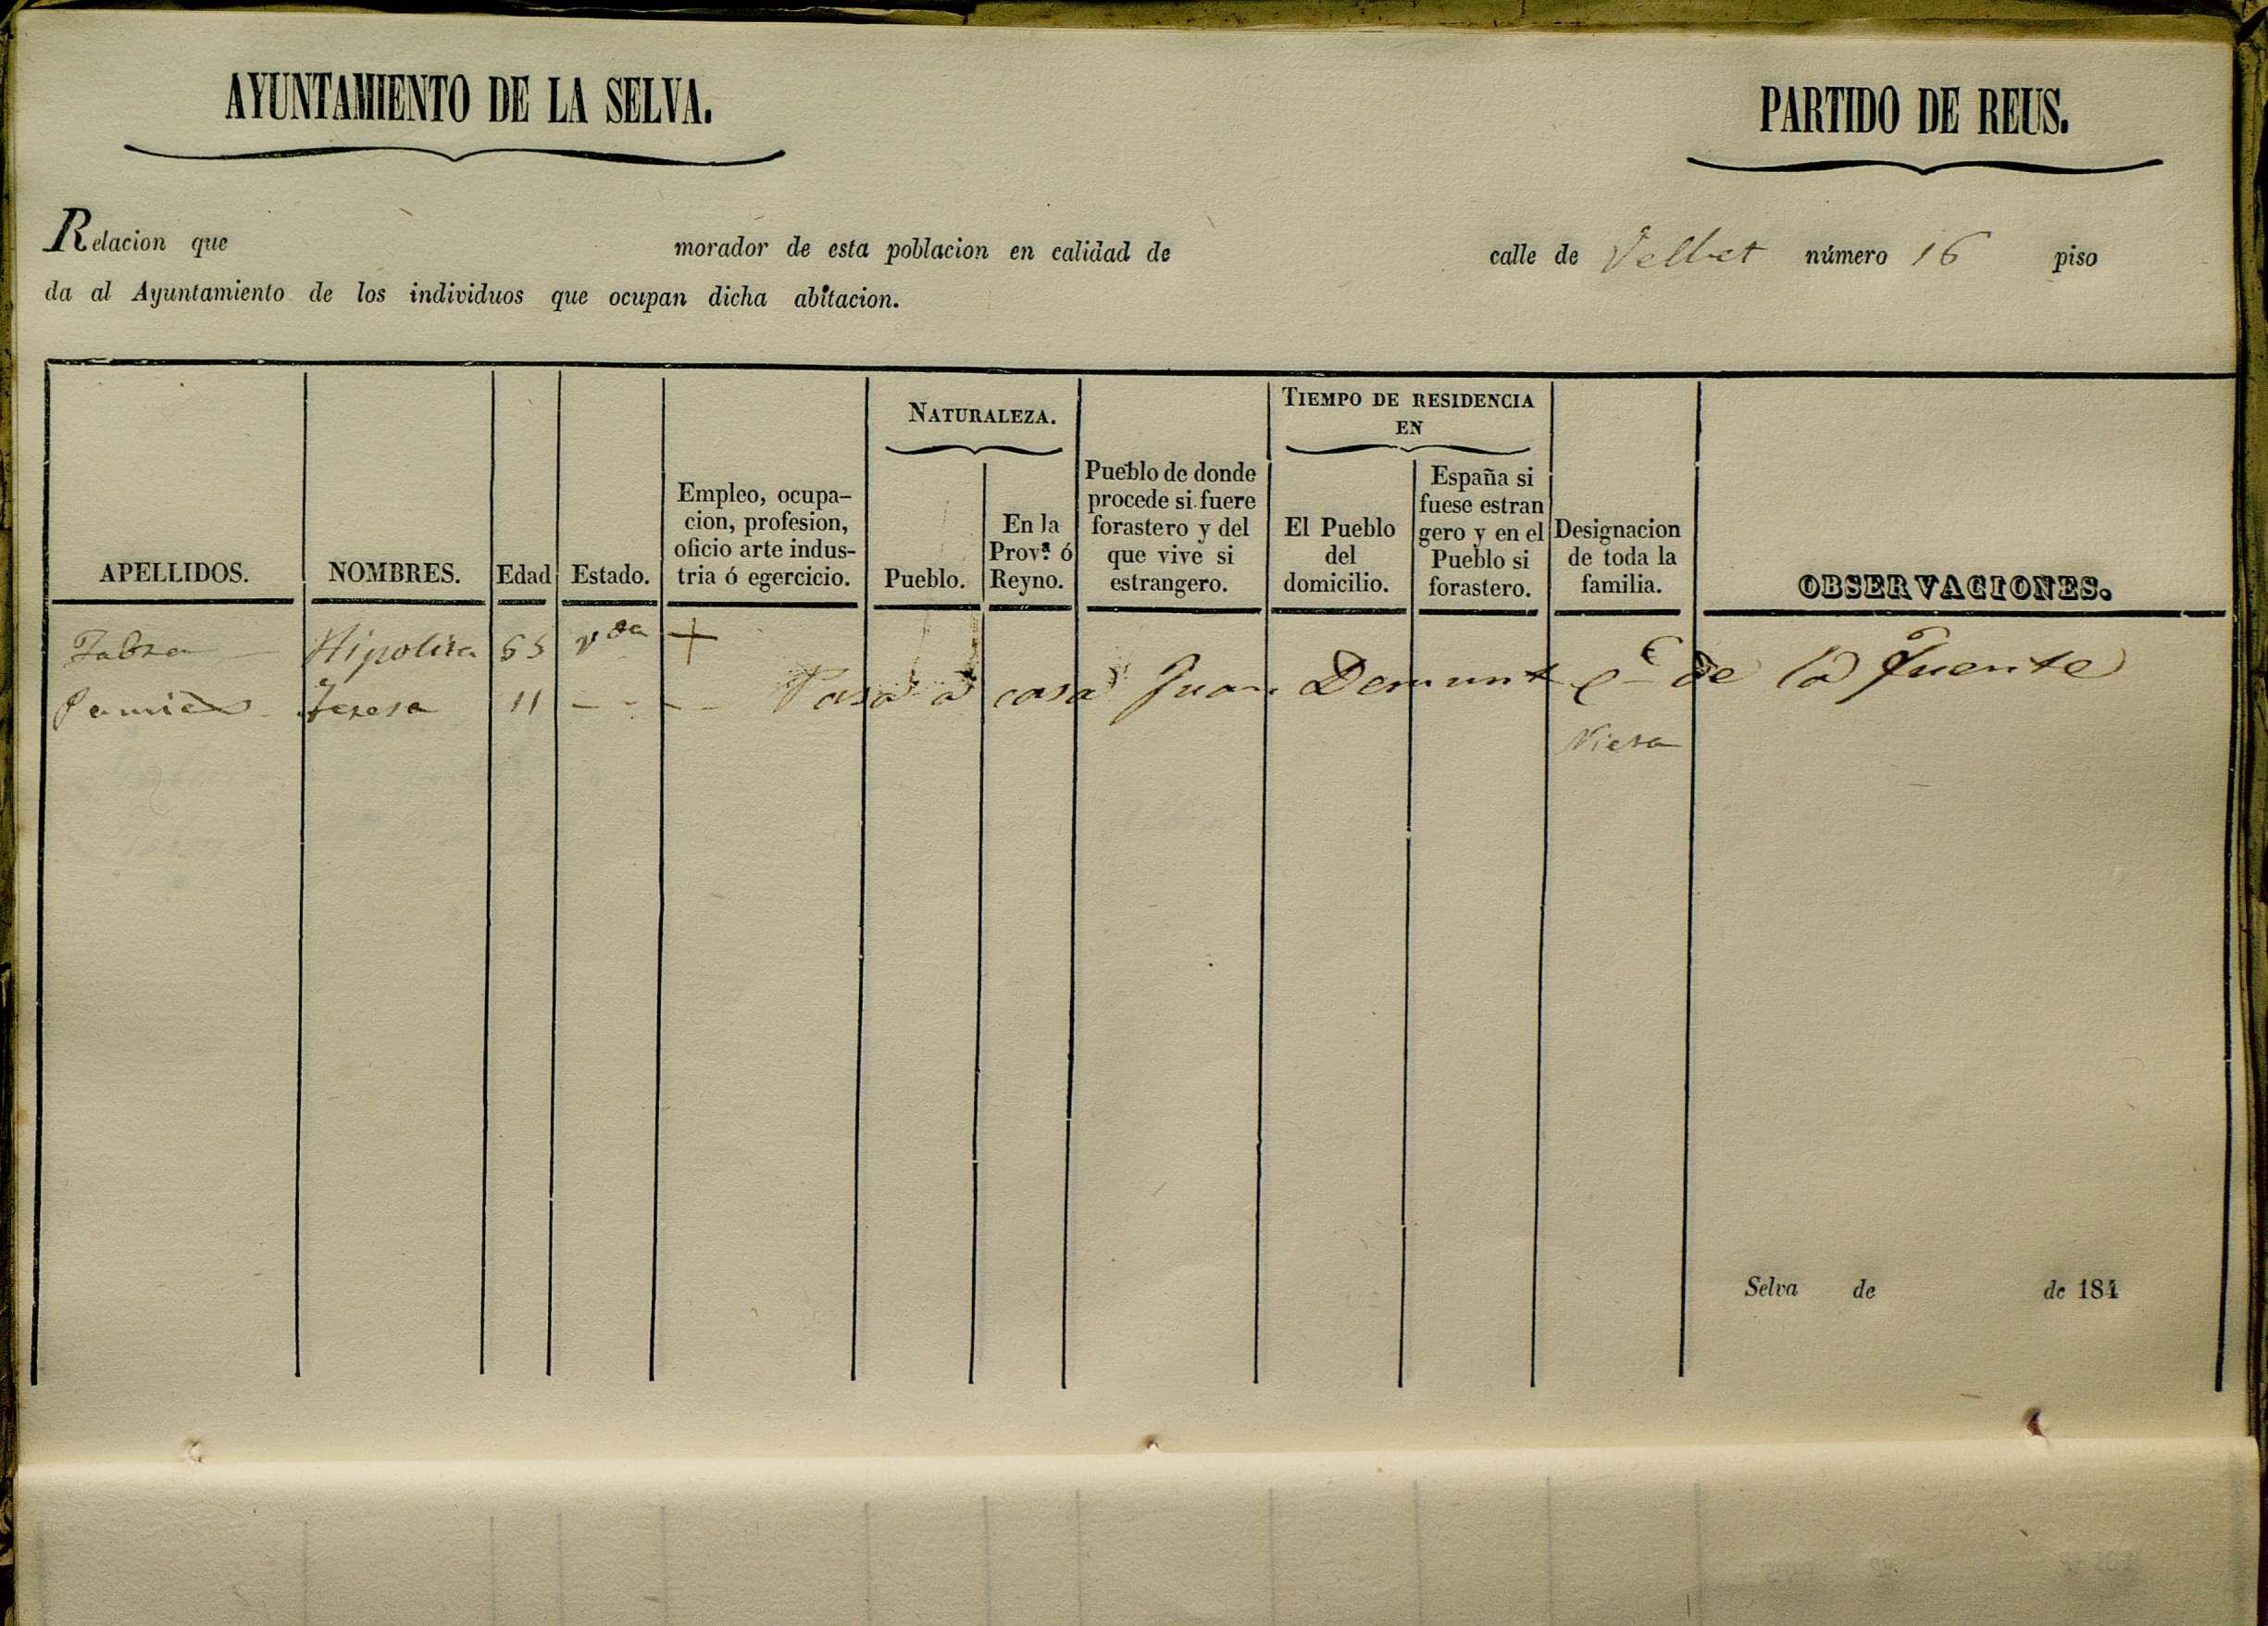 AYUNTAMIENTO DE LA SELVA.
PARTIDO DE REUS.
Relacion que morador de esta poblacion en calidad de calle de Vellet número 16 piso
da al Ayuntamiento de los individuos que ocupan dicha abitacion.
APELLIDOS.
NOMBRES.
Edad
Estado.
Empleo, ocupa-
cion, profesion,
oficio arte indus-
tria ó egercicio.
NATURALEZA.
Pueblo.
En la
Prov.ª ó
Reyno.
Pueblo de donde
procede si fuere
forastero y del
que vive si
estrangero.
TIEMPO DE RESIDENCIA
EN
El Pueblo
del
domicilio.
España si
fuese estran
gero y en el
Pueblo si
forastero.
Designacion
de toda la
familia.
OBSERVACIONES.
Fabra Hipolita 65 vda +
Pamies Teresa 11 - - - - Pasa á casa Juan Demunt Ce de la Fuente
Nieta
Selva de de 184